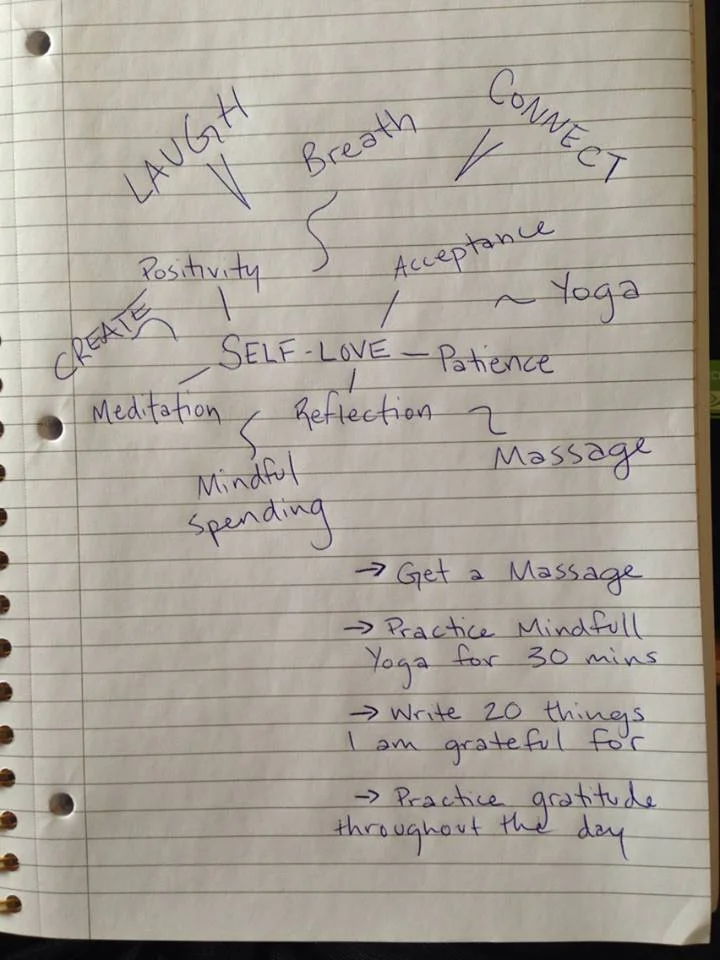 LAUGH
Breath
CONNECT
Positivity
Acceptance
Yoga
CREATE
SELF-LOVE
Patience
Meditation
Reflection
Massage
Mindful
spending
→ Get a Massage
→ Practice Mindfull
Yoga for 30 mins
→ Write 20 things
I am grateful for
→ Practice gratitude
throughout the day